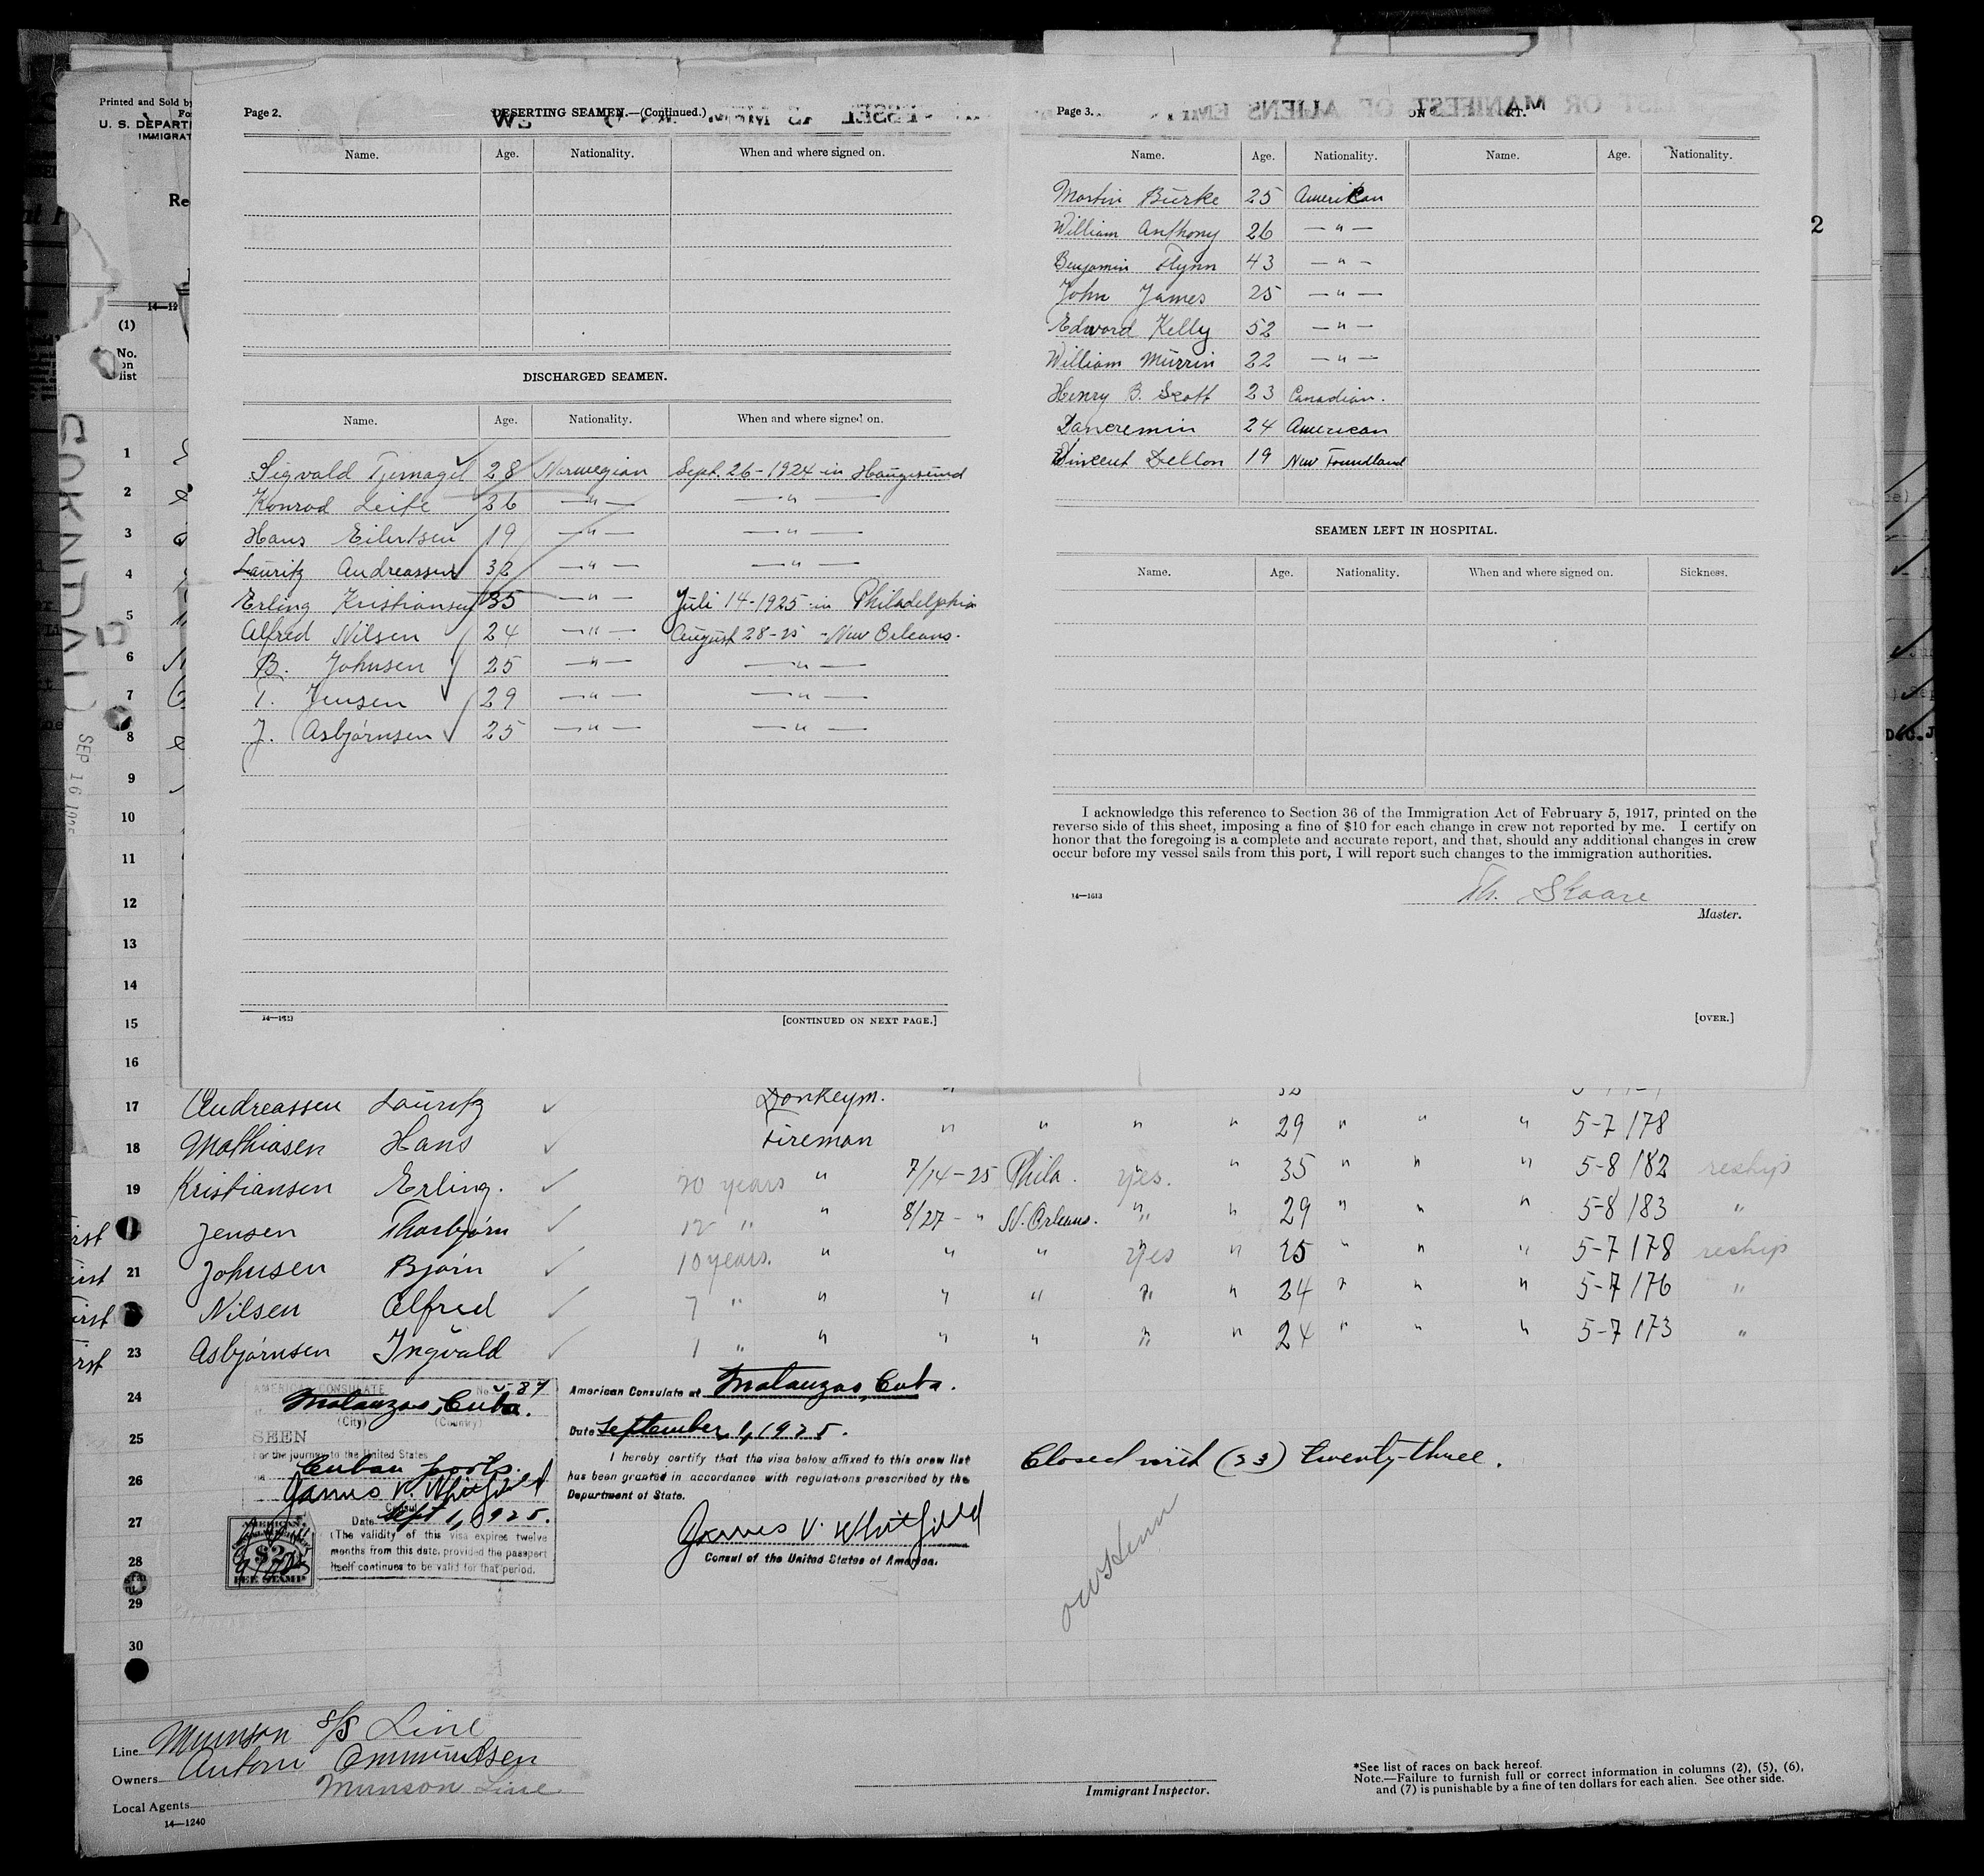 Printed and Sold by
U. S. DEPARTM
IMMIGRAT
Re
14—12
(1)
No.
on
list
GORNDAL
5
SEP 16
2
Page 2.
DESERTING SEAMEN.—(Continued.)
Name. Age. Nationality. When and where signed on.
DISCHARGED SEAMEN.
Name. Age. Nationality. When and where signed on.
Sigvald Tjernagel 28 Norwegian Sept. 26-1924 in Haugesund
Konrad Leife 26 —"— —"—
Hans Eilertsen 19 —"— —"—
Lauritz Andreassen 32 —"— —"—
Erling Kristiansen 35 —"— Juli 14-1925 in Philadelphia
Alfred Nilsen 24 —"— August 28-25 - New Orleans.
B. Johnsen 25 —"— —"—
T. Jensen 29 —"— —"—
J. Asbjørnsen 25 —"— —"—
14—1613
[CONTINUED ON NEXT PAGE.]
Page 3.
Name. Age. Nationality. Name. Age. Nationality.
Martin Burke 25 American
William Anthony 26 —"—
Benjamin Flynn 43 —"—
John James 25 —"—
Edward Kelly 52 —"—
William Murrin 22 —"—
Henry B. Scott 23 Canadian.
Dancremin 24 American
Vincent Dellon 19 New Foundland
SEAMEN LEFT IN HOSPITAL.
Name. Age. Nationality. When and where signed on. Sickness.
I acknowledge this reference to Section 36 of the Immigration Act of February 5, 1917, printed on the
reverse side of this sheet, imposing a fine of $10 for each change in crew not reported by me. I certify on
honor that the foregoing is a complete and accurate report, and that, should any additional changes in crew
occur before my vessel sails from this port, I will report such changes to the immigration authorities.
14—1613
Th. Skaare
Master.
[OVER.]
1
2
3
4
5
6
7
8
9
10
11
12
13
14
15
16
17 Andreassen Lauritz Donkeym. " 32
18 Mathiasen Hans Fireman " " " " 29 " " " 5-7 178
19 Kristiansen Erling. 20 years " 7/14-25 Phila. yes. " 35 " " " 5-8 182 reship
Jensen Thorbjørn 12 " " 8/27- " N. Orleans. " " 29 " " " 5-8 183 "
21 Johnsen Bjørn 10 years. " " " yes " 25 " " " 5-7 178 reship
Nilsen Alfred 7 " " " " " " 24 " " " 5-7 176 "
23 Asbjørnsen Ingvald 1 " " " " " " 24 " " " 5-7 173 "
24
25
26
27
28
29
30
AMERICAN CONSULATE
Matanzas, Cuba.
(City) (Country)
SEEN
For the journey to the United States
Cuban ports.
James V. Whitfield
Consul
Date Sept 1, 1925.
(The validity of this visa expires twelve
months from this date, provided the passport
itself continues to be valid for that period.
AMERICAN
$2
FEE STAMP
American Consulate at Matanzas, Cuba.
Date September 1, 1925.
I hereby certify that the visa below affixed to this crew list
has been granted in accordance with regulations prescribed by the
Department of State.
James V. Whitfield
Consul of the United States of America.
Closed with (23) twenty-three.
Line Munson S/S Line
Owners Anton Ommundsen
Local Agents Munson Line
14—1240
Immigrant Inspector.
*See list of races on back hereof.
Note.—Failure to furnish full or correct information in columns (2), (5), (6),
and (7) is punishable by a fine of ten dollars for each alien. See other side.